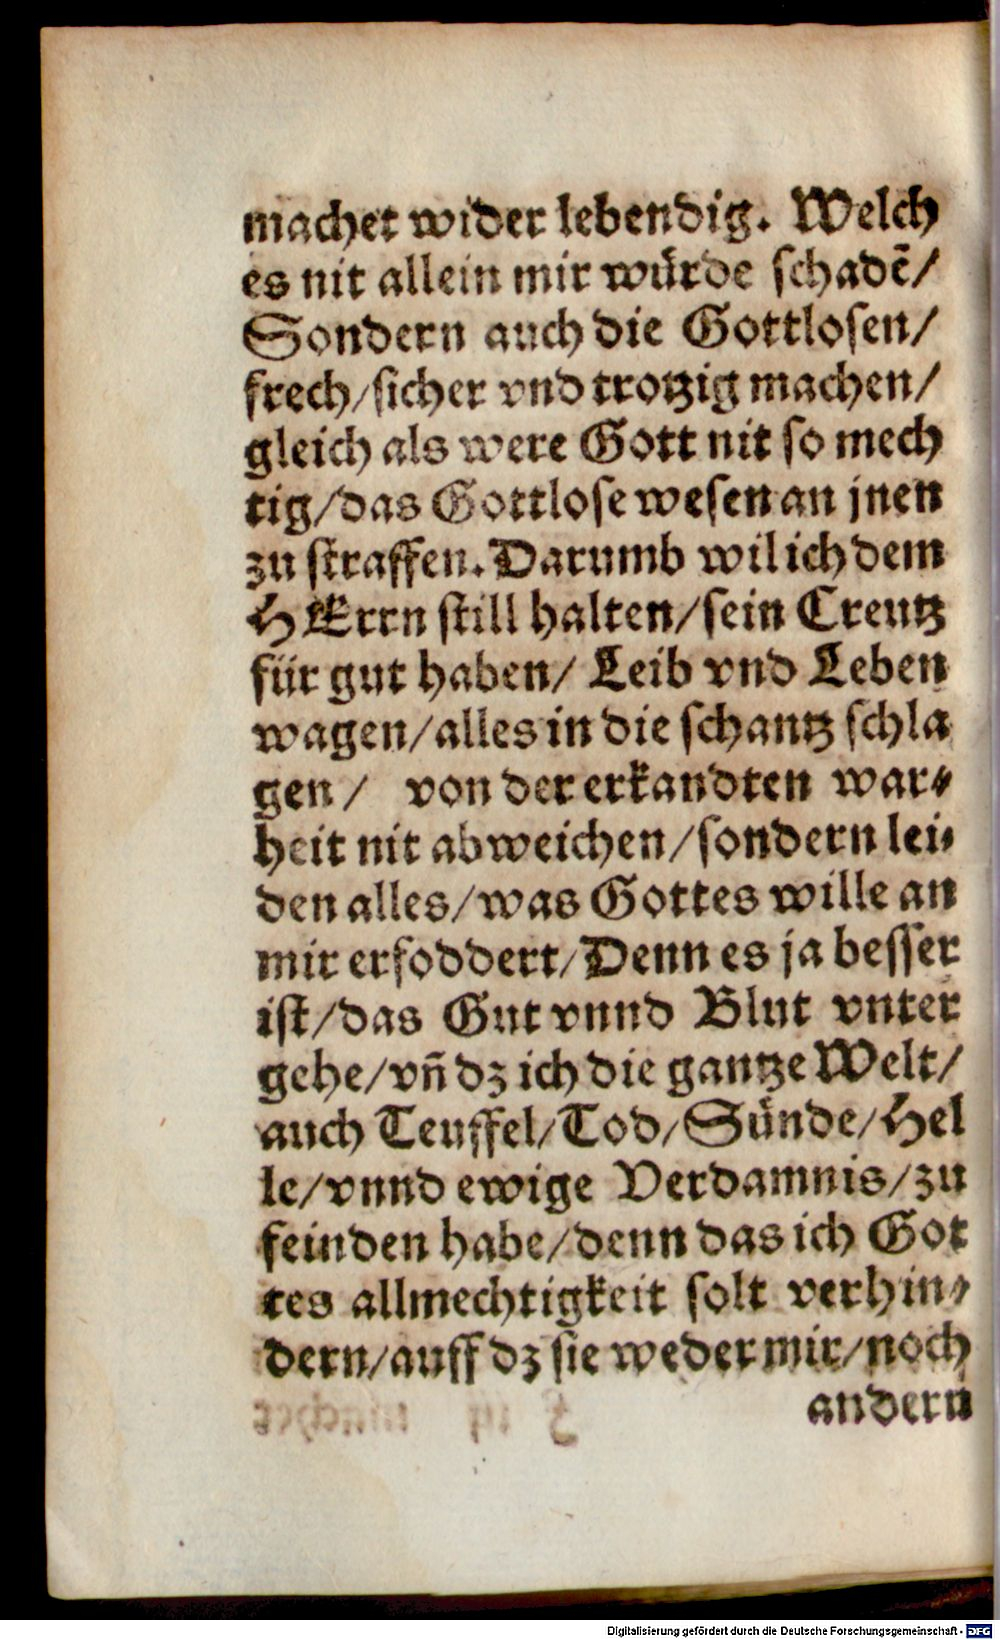 machet wider lebendig. Welch
es nit allein mir würde schadē/
Sondern auch die Gottlosen/
frech/sicher vnd trotzig machen/
gleich als were Gott nit so mech
tig/das Gottlose wesen an jnen
zu straffen. Darumb wil ich dem
HErrn still halten/sein Creutz
für gut haben/ Leib vnd Leben
wagen/alles in die schantz schla
gen/ von der erkandten war⸗
heit nit abweichen/sondern lei⸗
den alles/was Gottes wille an
mir erfoddert/Denn es ja besser
ist/das Gut vnnd Blut vnter
gehe/vñ dz ich die gantze Welt/
auch Teuffel/Tod/Sünde/Hel
le/vnnd ewige Verdamnis/zu
feinden habe/denn das ich Got
tes allmechtigkeit solt verhin⸗
dern/auff dz sie weder mir/noch
andern
Digitalisierung gefördert durch die Deutsche Forschungsgemeinschaft - DFG